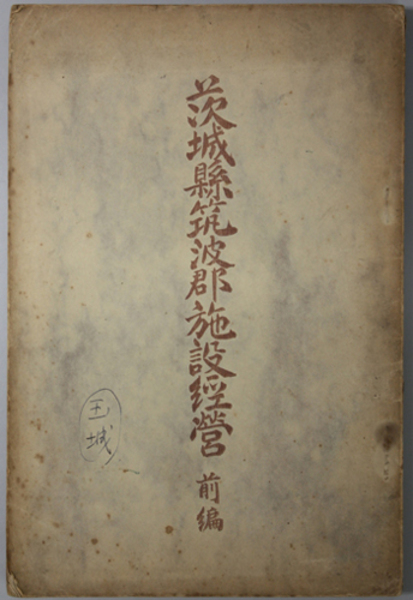 茨城縣筑波郡施設經營 前編
玉城